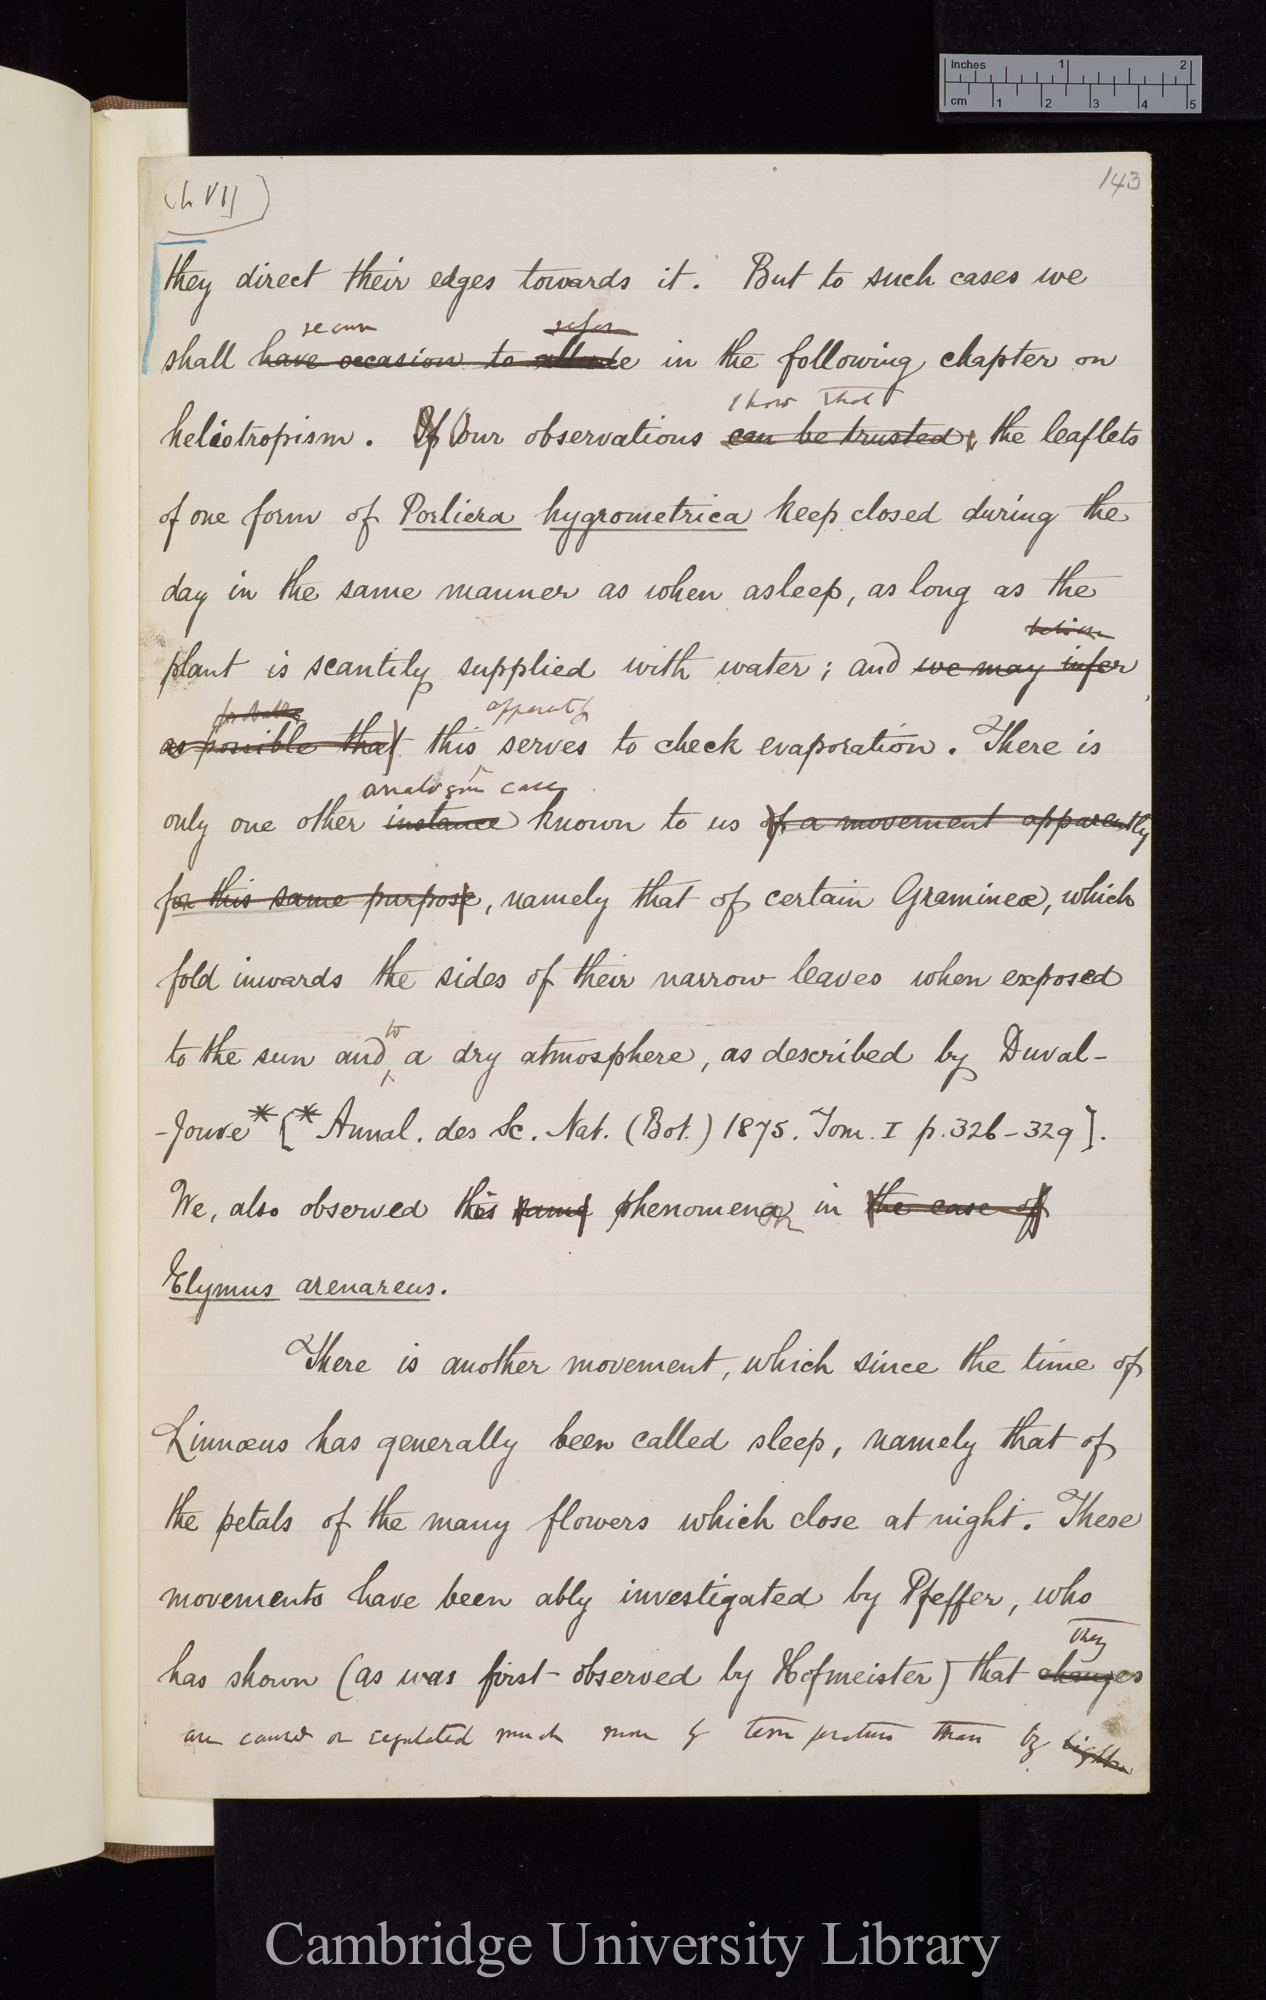 Inches 1 2
cm 1 2 3 4 5
(Ch VII)
143
they direct their edges towards it. But to such cases we
recur refer
shall have occasion to allude in the following chapter on
show that
heliotropism. If Our observations can be trusted, the leaflets
of one form of Porliera hygrometrica keep closed during the
day in the same manner as when asleep, as long as the
believe
plant is scantily supplied with water; and we may infer
probable apparently
as possible that this serves to check evaporation. There is
analogous case
only one other instance known to us of a movement apparently
for this same purpose, namely that of certain Gramineæ, which
fold inwards the sides of their narrow leaves when exposed
to
to the sun and a dry atmosphere, as described by Duval-
-Jouve* [* Annal. des Sc. Nat. (Bot.) 1875. Tom. I p. 326-329].
We, also observed this same phenomenon in the case of
Elymus arenareus.
There is another movement, which since the time of
Linnæus has generally been called sleep, namely that of
the petals of the many flowers which close at night. These
movements have been ably investigated by Pfeffer, who
they
has shown (as was first observed by Hofmeister) that changes
are caused or regulated much more by temperature than by light
Cambridge University Library